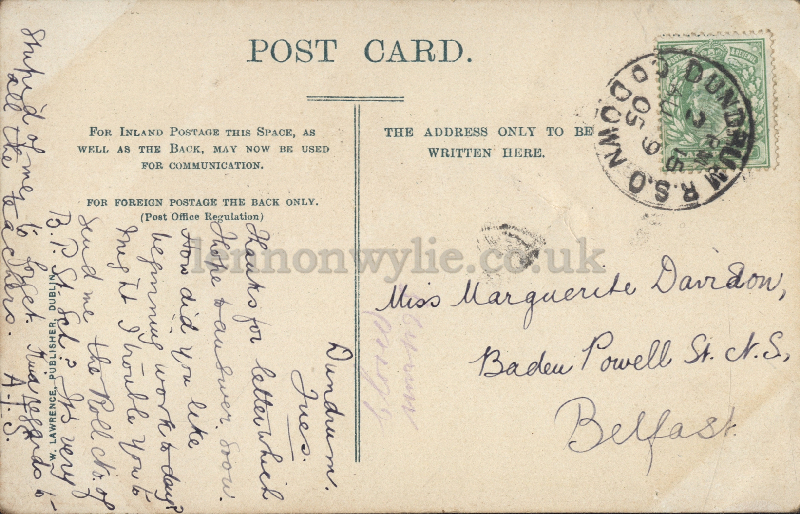 POST CARD.
FOR INLAND POSTAGE THIS SPACE, AS
WELL AS THE BACK, MAY NOW BE USED
FOR COMMUNICATION.
FOR FOREIGN POSTAGE THE BACK ONLY.
(Post Office Regulation)
THE ADDRESS ONLY TO BE
WRITTEN HERE.
W. LAWRENCE, PUBLISHER, DUBLIN.
DUNDRUM R.S.O CO DOWN
AU
05
lennonwylie.co.uk
Miss Marguerite Davidson,
Baden Powell St. N.S,
Belfast
Dundrum.
Tues.
Thanks for letter which
I hope to answer soon.
How did you like
beginning work to day?
Might I trouble you to
send me the Roll No. of
B.P. St. Sch.? It's very
stupid of me to forget. Kind regards to
all the teachers. A.I.S.